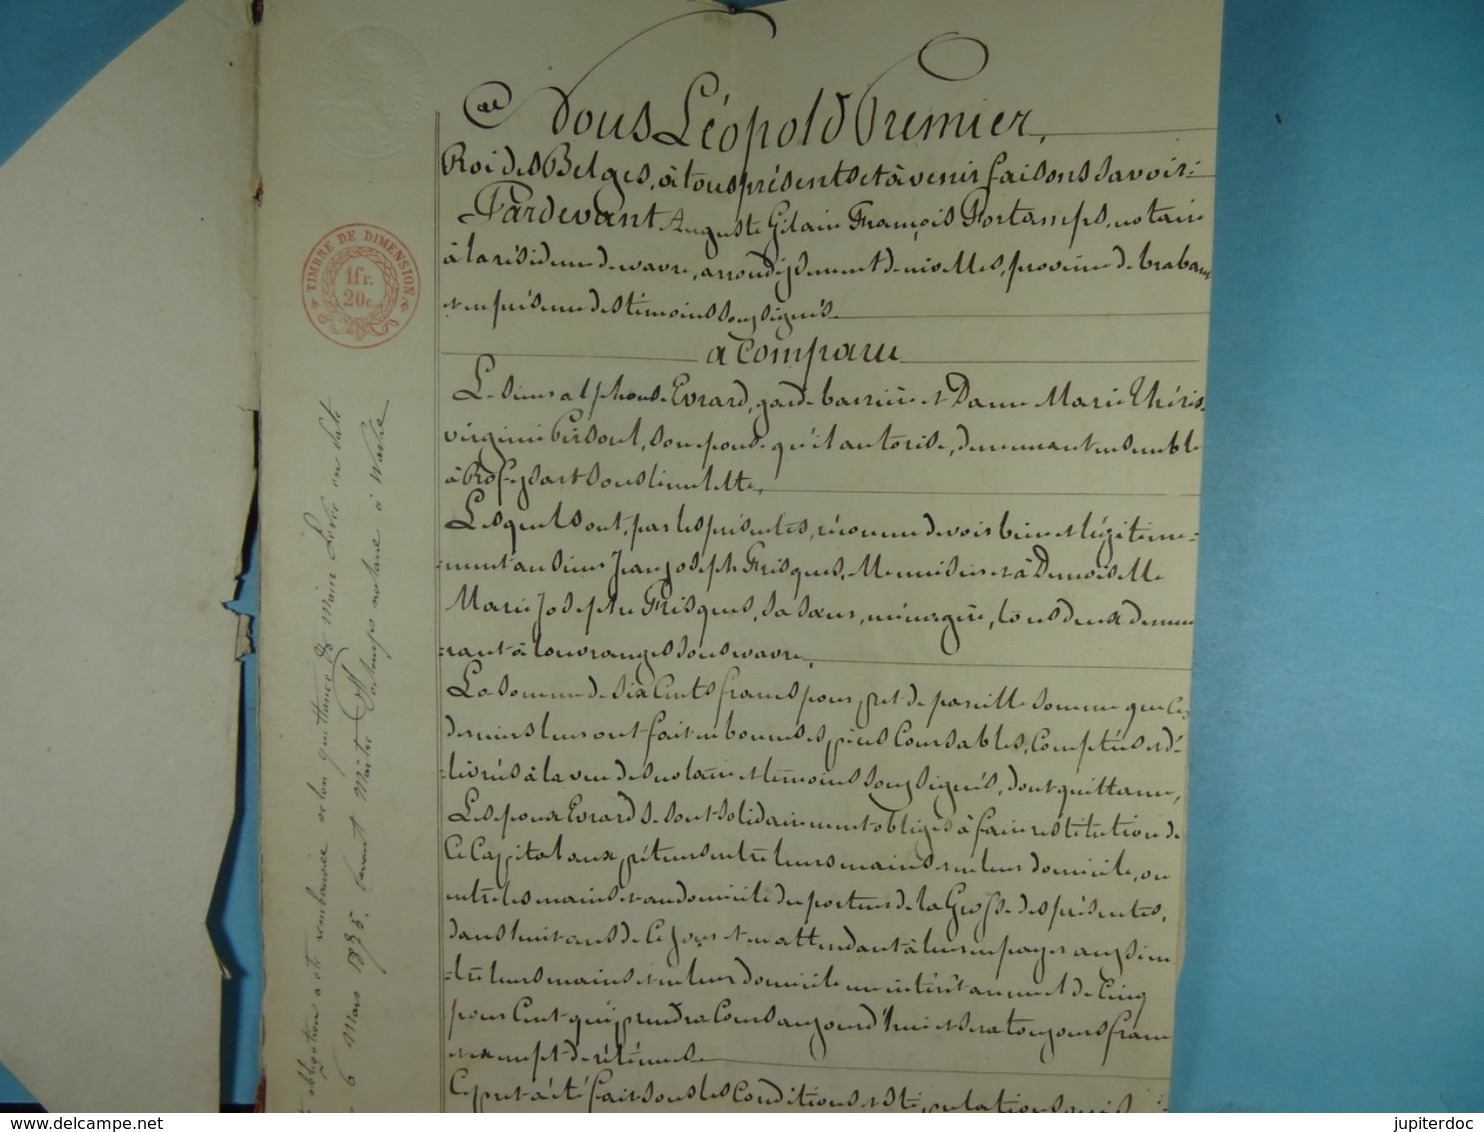 Nous Léopold Premier,
Roi des Belges, à tous présents et à venir faisons savoir:
Pardevant Auguste Gilain François Fortamps, notaire
à la résidence de wavre, arrondissement de nivelles, province de brabant
et en présence des témoins soussignés.
a Comparu
Le Sieur alphonse Evrard, garde barrière et Dame Marie Thérèse
virginie Persoul, son epouse qu'il autorise, demeurant ensemble
à Profondsart sous limelette.
Lesquels ont, par les présentes, reconnu devoir bien et légitime-
=ment au Sieur Jean Joseph Frisque, Menuisier et à Demoiselle
Marie Josephe Frisque, sa soeur, ménagère, tous deux demeu
=rant à louvranges sous wavre,
La somme de six Cents francs pour prêt de pareille somme que Ces
derniers leur ont fait en bonnes espèces Coursables, Comptées et dé
=livrées à la vue des notaire et témoins soussignés, dont quittance,
Les epoux Evrard se sont solidairement obligés à faire restitution de
Ce Capital aux prêteurs entre leurs mains en leur domicile, ou
entre les mains et au domicile du porteur de la Grosse des présentes,
dans huit ans de Ce jour et en attendant à leur en payer aussi en
=tre leurs mains et en leur domicile un intérêt annuel de Cinq
pour Cent qui prendra Cours aujourd'hui et sera toujours franc
et exempt de retenues.
Ce prêt a été fait sous les Conditions et stipulations
TIMBRE DE DIMENSION
1fr.
20c.
obligation a été remboursée selon quittance & Main Levée en date
6 Mars 1895. devant Maître Fortamps notaire à Wavre
jupiterdoc